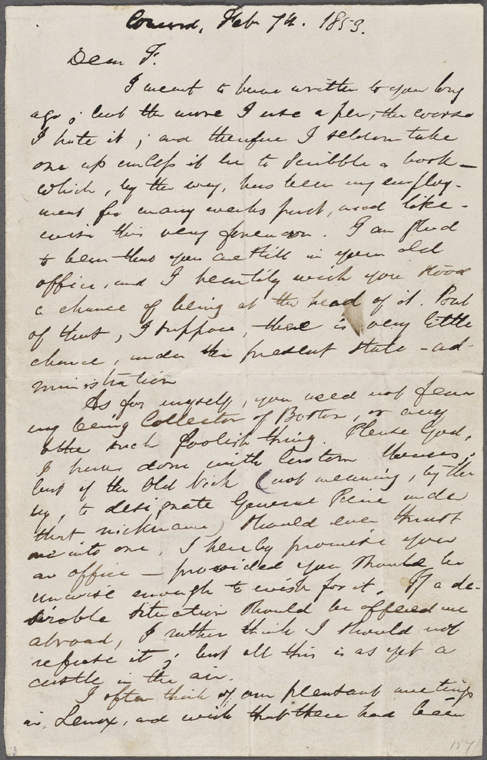 Concord, Feb 7th. 1853.
Dear F.
I meant to have written to you long
ago; but the more I use a pen, the worse
I hate it; and therefore I seldom take
one up unless it be to scribble a book—
which, by the way, has been my employ-
ment for many weeks past, and like-
wise this very forenoon. I am glad
to hear that you are still in your old
office, and I heartily wish you stood
a chance of being at the head of it. But
of that, I suppose, there is very little
chance, under the present state-ad-
ministration
As for myself, you need not fear
my being Collector of Boston, or any
other such foolish thing. Please God,
I have done with Custom Houses;
but if the Old Nick (not meaning, by the
by, to designate General Pierce under
that nickname) should ever thrust
me into one, I hereby promise you
an office—provided you should be
unwise enough to wish for it. If a de-
sirable situation should be offered me
abroad, I rather think I should not
refuse it; but all this is as yet a
castle in the air.
I often think of our pleasant meetings
in Lenox, and wish that there had been
157